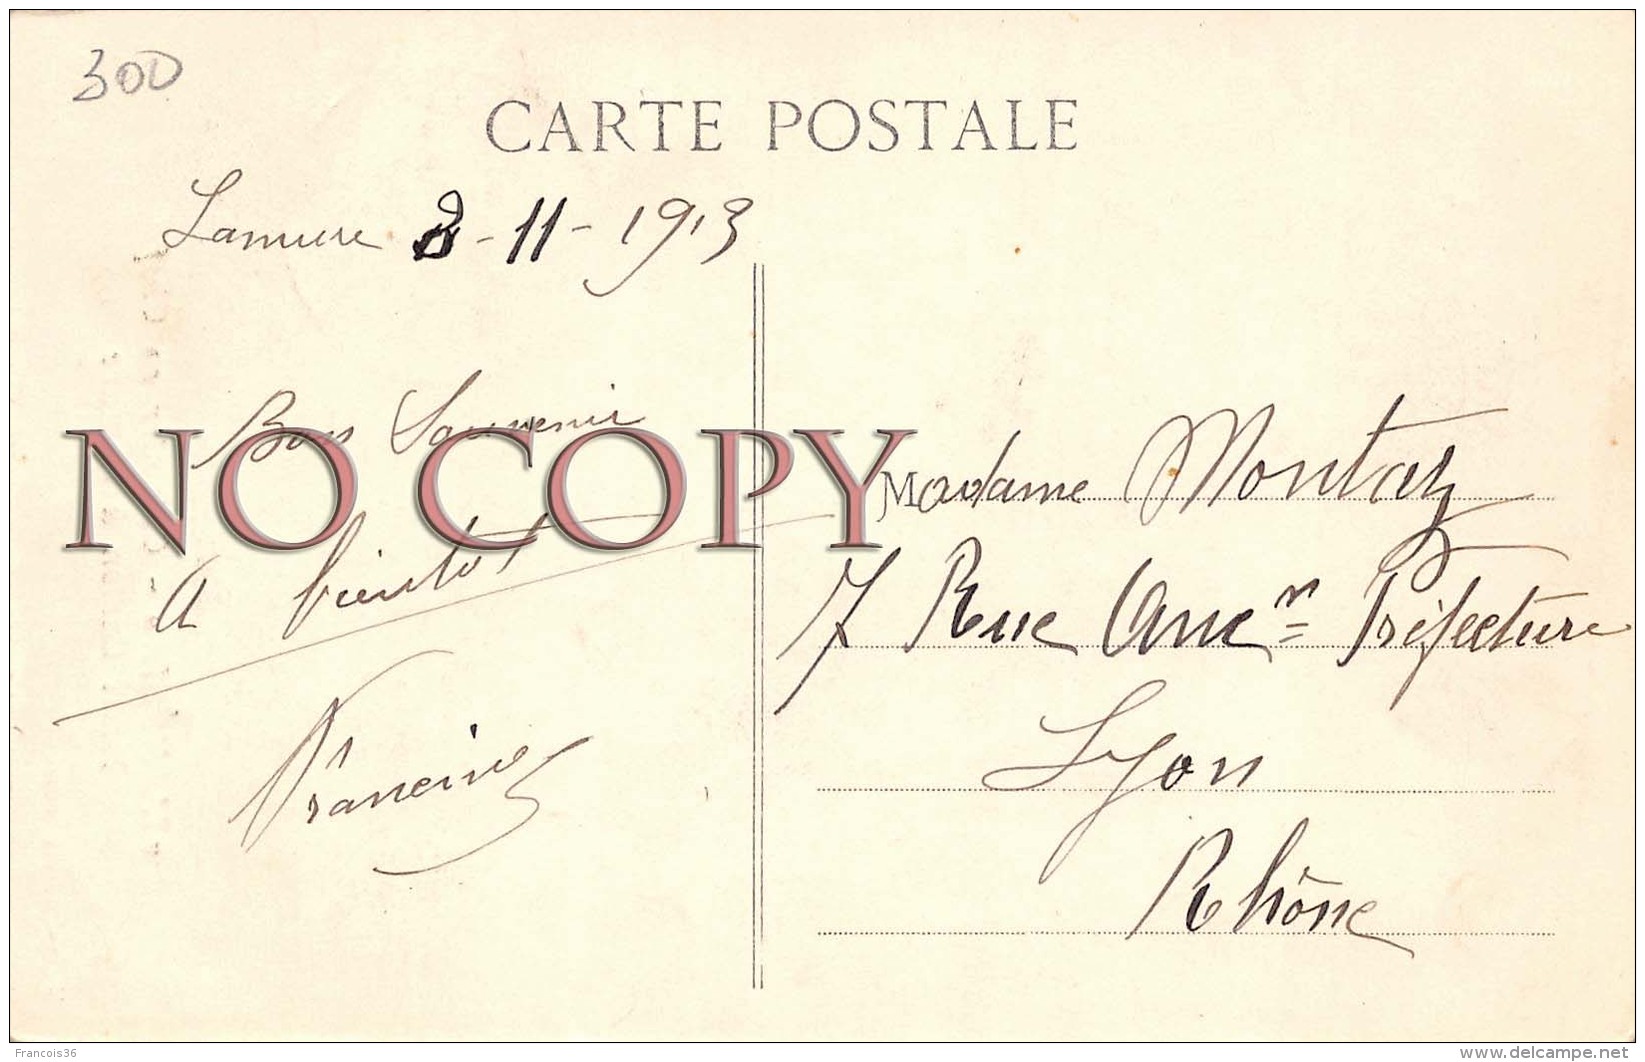 300
CARTE POSTALE
8-11-1913
Bon Souvenir
A bientot
Francine
Madame Montaz
7 Rue Anc^ne Préfecture
Lyon
Rhône
NO COPY
Francois36
www.delcampe.net